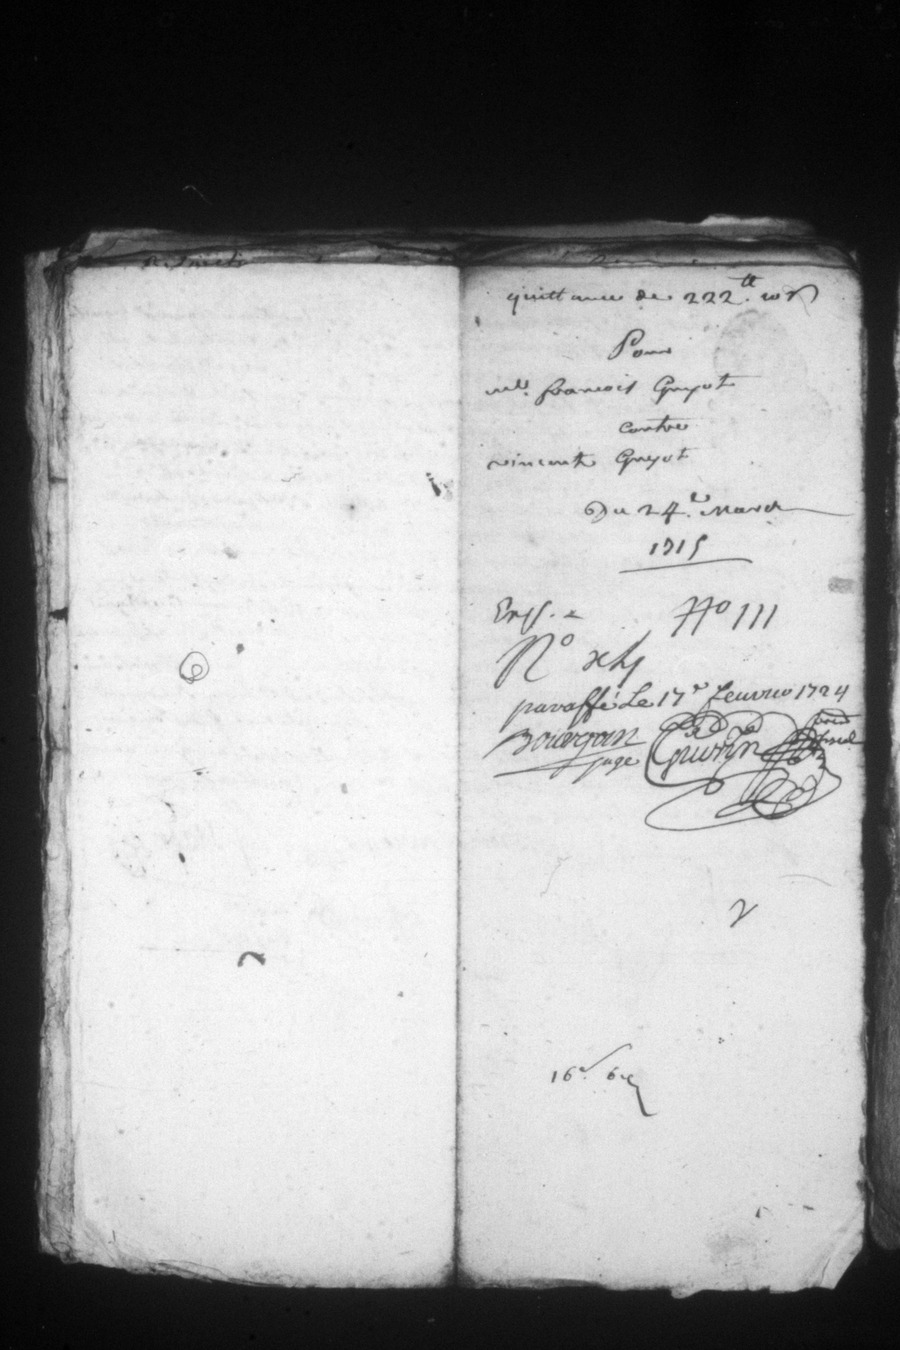 quittance de 222tt 10s
Pour
md. francois Guyot
contre
vincent Guyot
Du 24.e March
1715
No 111
No xlj
paraffé Le 17e feuurio 1724
Bourgoin juge Guerin
16e.